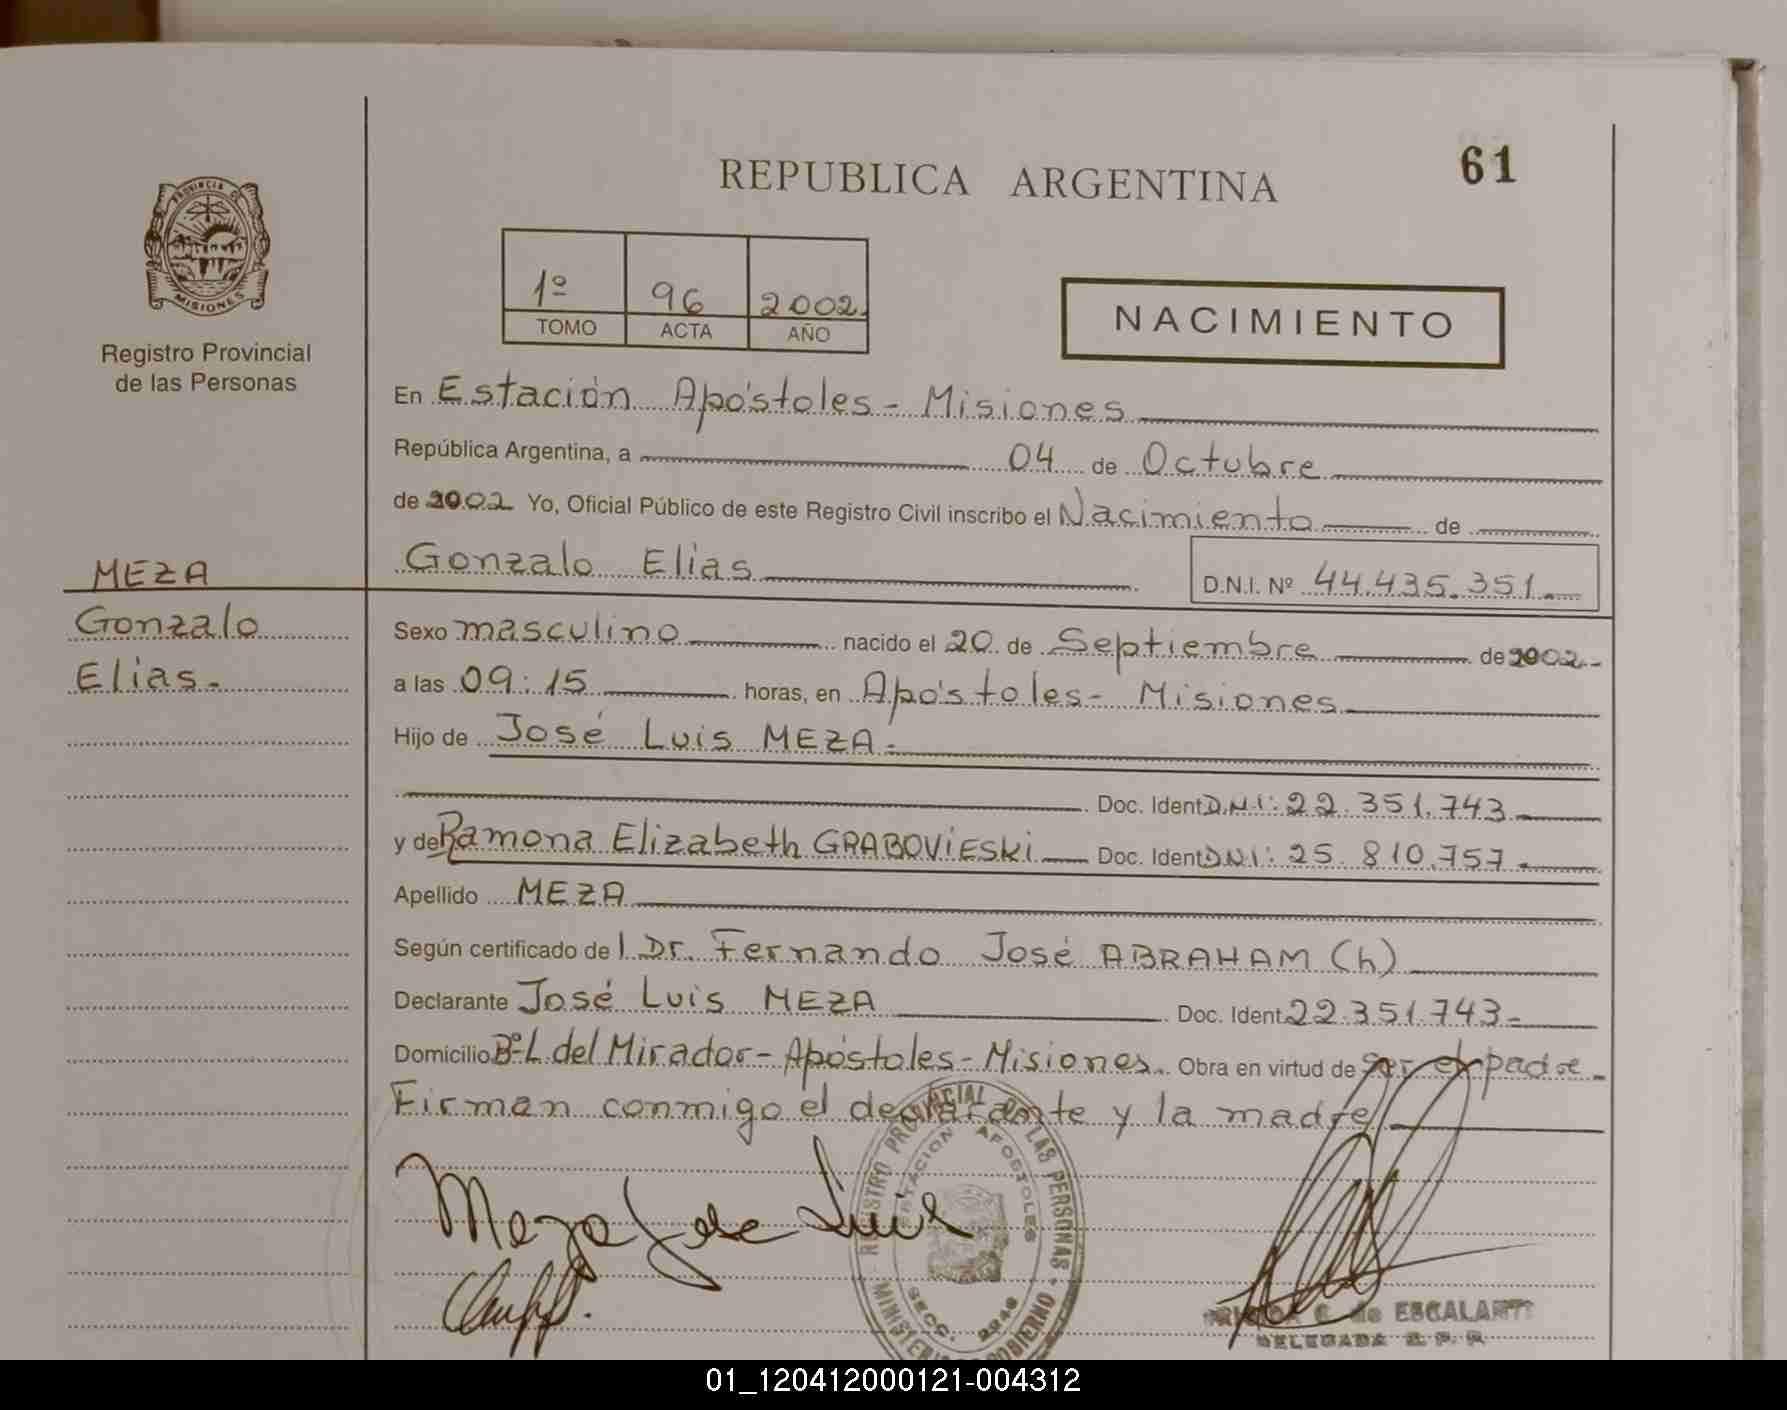 REPUBLICA ARGENTINA
61
PROVINCIA DE
MISIONES
Registro Provincial
de las Personas
1º 96 2002
TOMO ACTA AÑO
NACIMIENTO
En Estación Apóstoles - Misiones
República Argentina, a 04 de Octubre
de 2002 Yo, Oficial Público de este Registro Civil inscribo el Nacimiento de
Gonzalo Elias
D.N.I. Nº 44.435.351.
MEZA
Gonzalo
Elias.
Sexo masculino nacido el 20 de Septiembre de 2002.
a las 09:15 horas, en Apóstoles - Misiones
Hijo de José Luis MEZA.
Doc. Ident D.N.I: 22.351.743
y de Ramona Elizabeth GRABOVIESKi Doc. Ident D.N.I: 25.810.757
Apellido MEZA
Según certificado de l Dr. Fernando José ABRAHAM (h)
Declarante José Luis MEZA Doc. Ident 22.351.743-
Domicilio Bº L. del Mirador - Apóstoles - Misiones. Obra en virtud de ser el padre.
Firman conmigo el declarante y la madre
Meza Jose Luis
REGISTRO PROVINCIAL DE LAS PERSONAS
ESTACION APOSTOLES
SECC.
MINISTERIO GOBIERNO
de ESCALANTE
DELEGADA R. P. P.
01_120412000121-004312